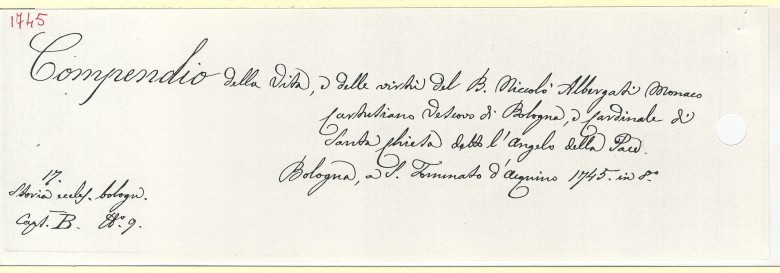 1745
Compendio della Vita, e delle virtù del B. Niccolò Albergati Monaco
Certosiano Vescovo di Bologna, e Cardinale di
Santa Chiesa detto l'Angelo della Pace.
Bologna, a S. Tommaso d'Aquino 1745. in 8.o
17.
Storia eccles. bologn.
Caps. B. No. 9.